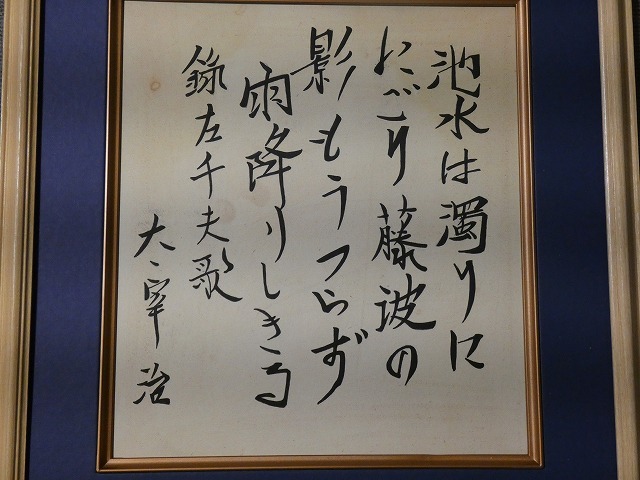 池水は濁りに
にごり藤波の
影もうつらず
雨降りしきる
録左千夫歌
太宰治